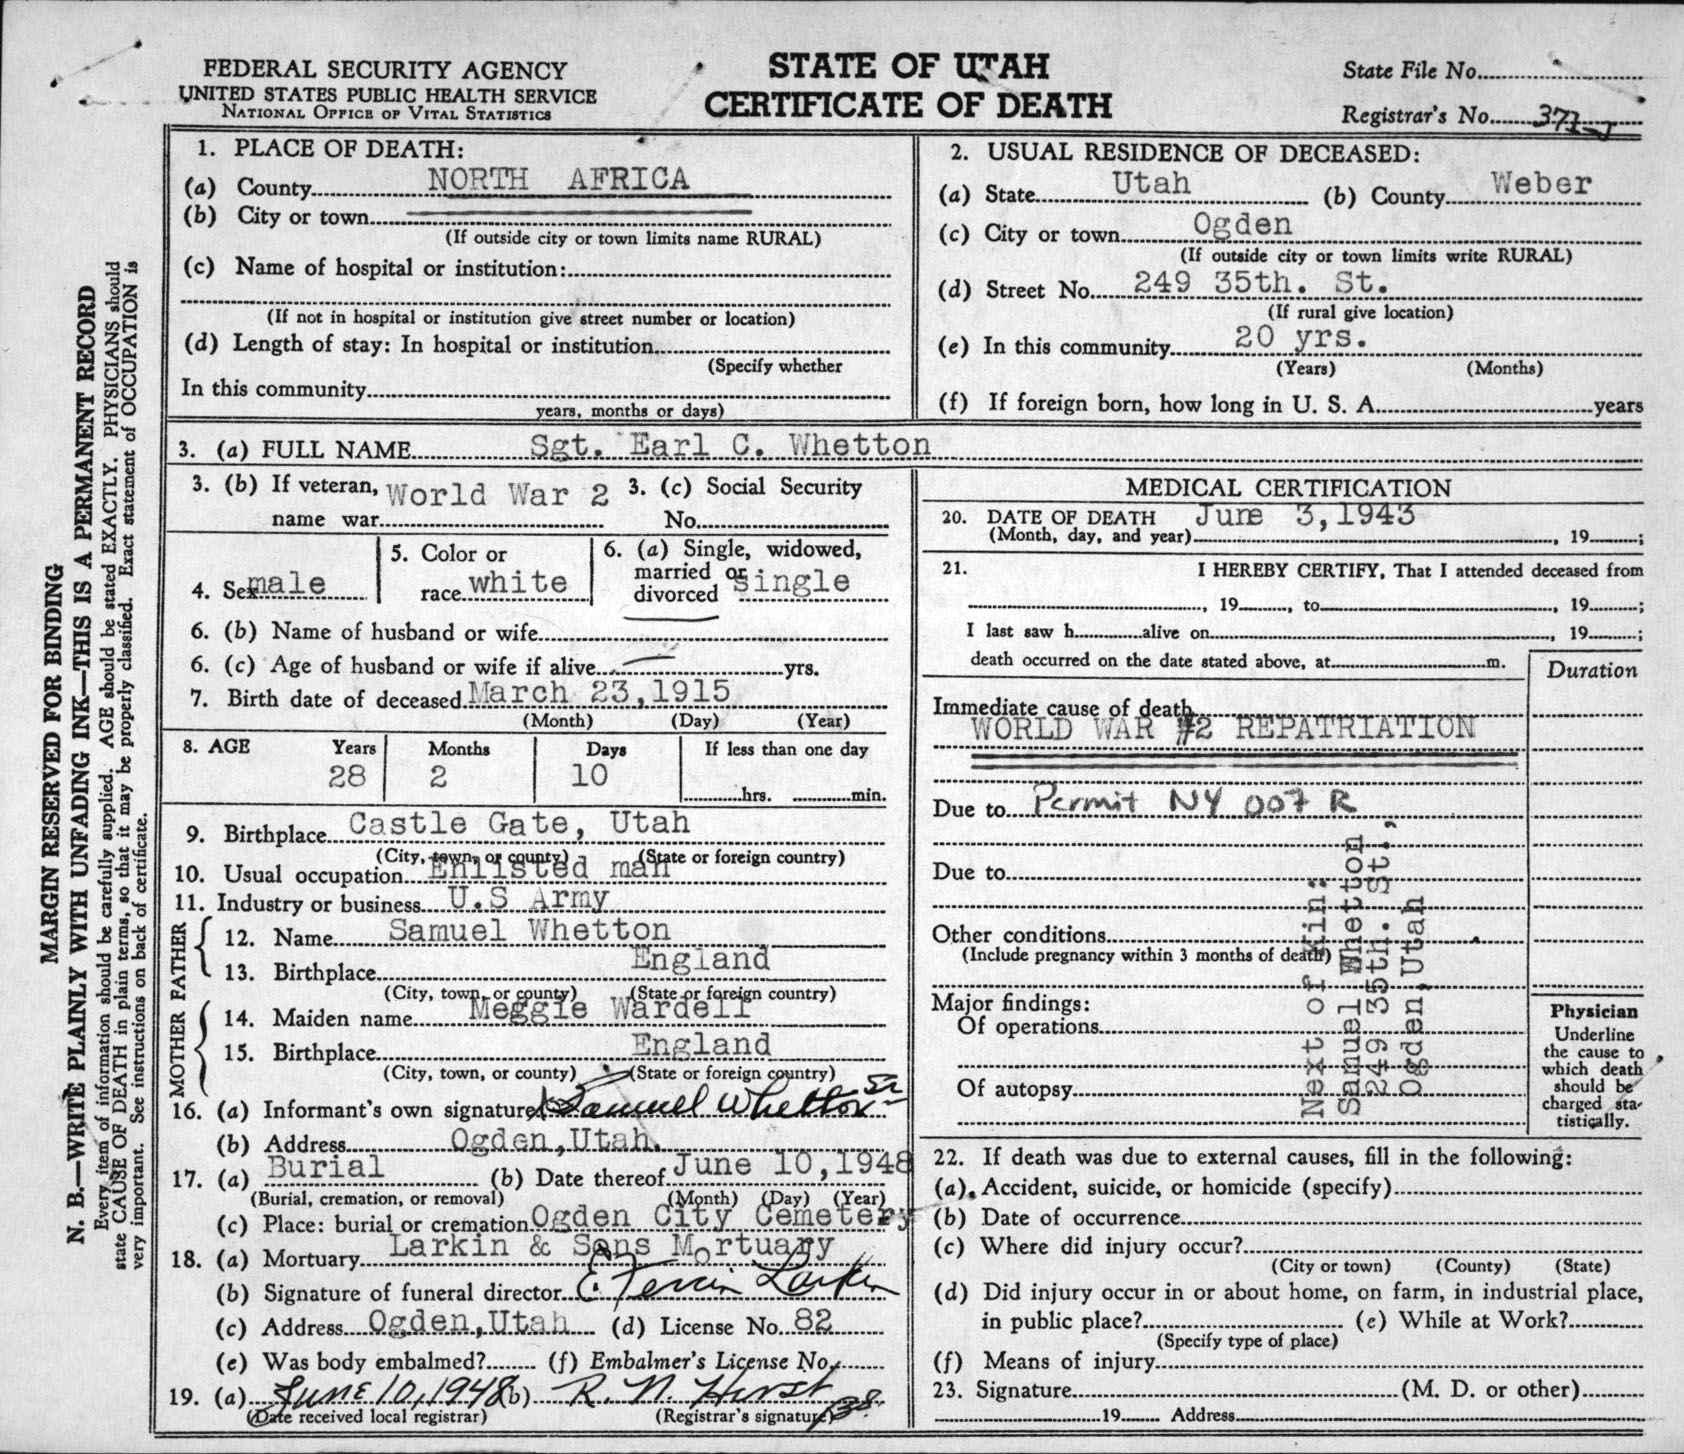 FEDERAL SECURITY AGENCY
UNITED STATES PUBLIC HEALTH SERVICE
NATIONAL OFFICE OF VITAL STATISTICS
STATE OF UTAH
CERTIFICATE OF DEATH
State File No.
Registrar's No.
MARGIN RESERVED FOR BINDING
N. B.—WRITE PLAINLY WITH UNFADING INK—THIS IS A PERMANENT RECORD
Every item of information should be carefully supplied. AGE should be stated EXACTLY. PHYSICIANS should
state CAUSE OF DEATH in plain terms, so that it may be properly classified. Exact statement of OCCUPATION is
very important. See instructions on back of certificate.
1. PLACE OF DEATH:
(a) County NORTH AFRICA
(b) City or town
(If outside city or town limits name RURAL)
(c) Name of hospital or institution:
(If not in hospital or institution give street number or location)
(d) Length of stay: In hospital or institution
(Specify whether
In this community
years, months or days)
2. USUAL RESIDENCE OF DECEASED:
(a) State Utah (b) County Weber
(c) City or town Ogden
(If outside city or town limits write RURAL)
(d) Street No. 249 35th. St.
(If rural give location)
(e) In this community 20 yrs.
(Years) (Months)
(f) If foreign born, how long in U. S. A. years
3. (a) FULL NAME Sgt. Earl C. Whetton
3. (b) If veteran, World War 2 3. (c) Social Security
name war No.
4. Sex male
5. Color or
race white
6. (a) Single, widowed,
married or
divorced single
6. (b) Name of husband or wife
6. (c) Age of husband or wife if alive yrs.
7. Birth date of deceased March 23,1915
(Month) (Day) (Year)
8. AGE Years Months Days If less than one day
28 2 10
hrs. min.
9. Birthplace Castle Gate, Utah
(City, town, or county) (State or foreign country)
10. Usual occupation Enlisted man
11. Industry or business U.S Army
FATHER
12. Name Samuel Whetton
13. Birthplace England
(City, town, or county) (State or foreign country)
MOTHER
14. Maiden name Meggie Wardell
15. Birthplace England
(City, town, or county) (State or foreign country)
16. (a) Informant's own signature X Samuel Whetton Sr
(b) Address Ogden,Utah.
17. (a) Burial (b) Date thereof June 10,1948
(Burial, cremation, or removal) (Month) (Day) (Year)
(c) Place: burial or cremation Ogden City Cemetery
18. (a) Mortuary Larkin & Sons Mortuary
(b) Signature of funeral director E. Larkin
(c) Address Ogden,Utah (d) License No. 82
(e) Was body embalmed? (f) Embalmer's License No.
19. (a) June 10, 1948 (b) R. N. Hirst
(Date received local registrar) (Registrar's signature)
MEDICAL CERTIFICATION
20. DATE OF DEATH June 3,1943
(Month, day, and year) , 19 ;
21. I HEREBY CERTIFY, That I attended deceased from
, 19 , to , 19 ;
I last saw h alive on , 19 ;
death occurred on the date stated above, at m.
Duration
Immediate cause of death
WORLD WAR #2 REPATRIATION
Due to Permit NY 007 R
Due to
Other conditions
(Include pregnancy within 3 months of death)
Major findings:
Of operations
Of autopsy
Next of Kin:
Samuel Whetton
249 35th. St.,
Ogden, Utah
Physician
Underline
the cause to
which death
should be
charged sta-
tistically.
22. If death was due to external causes, fill in the following:
(a) Accident, suicide, or homicide (specify)
(b) Date of occurrence
(c) Where did injury occur?
(City or town) (County) (State)
(d) Did injury occur in or about home, on farm, in industrial place,
in public place? (e) While at Work?
(Specify type of place)
(f) Means of injury
23. Signature (M. D. or other)
19 Address